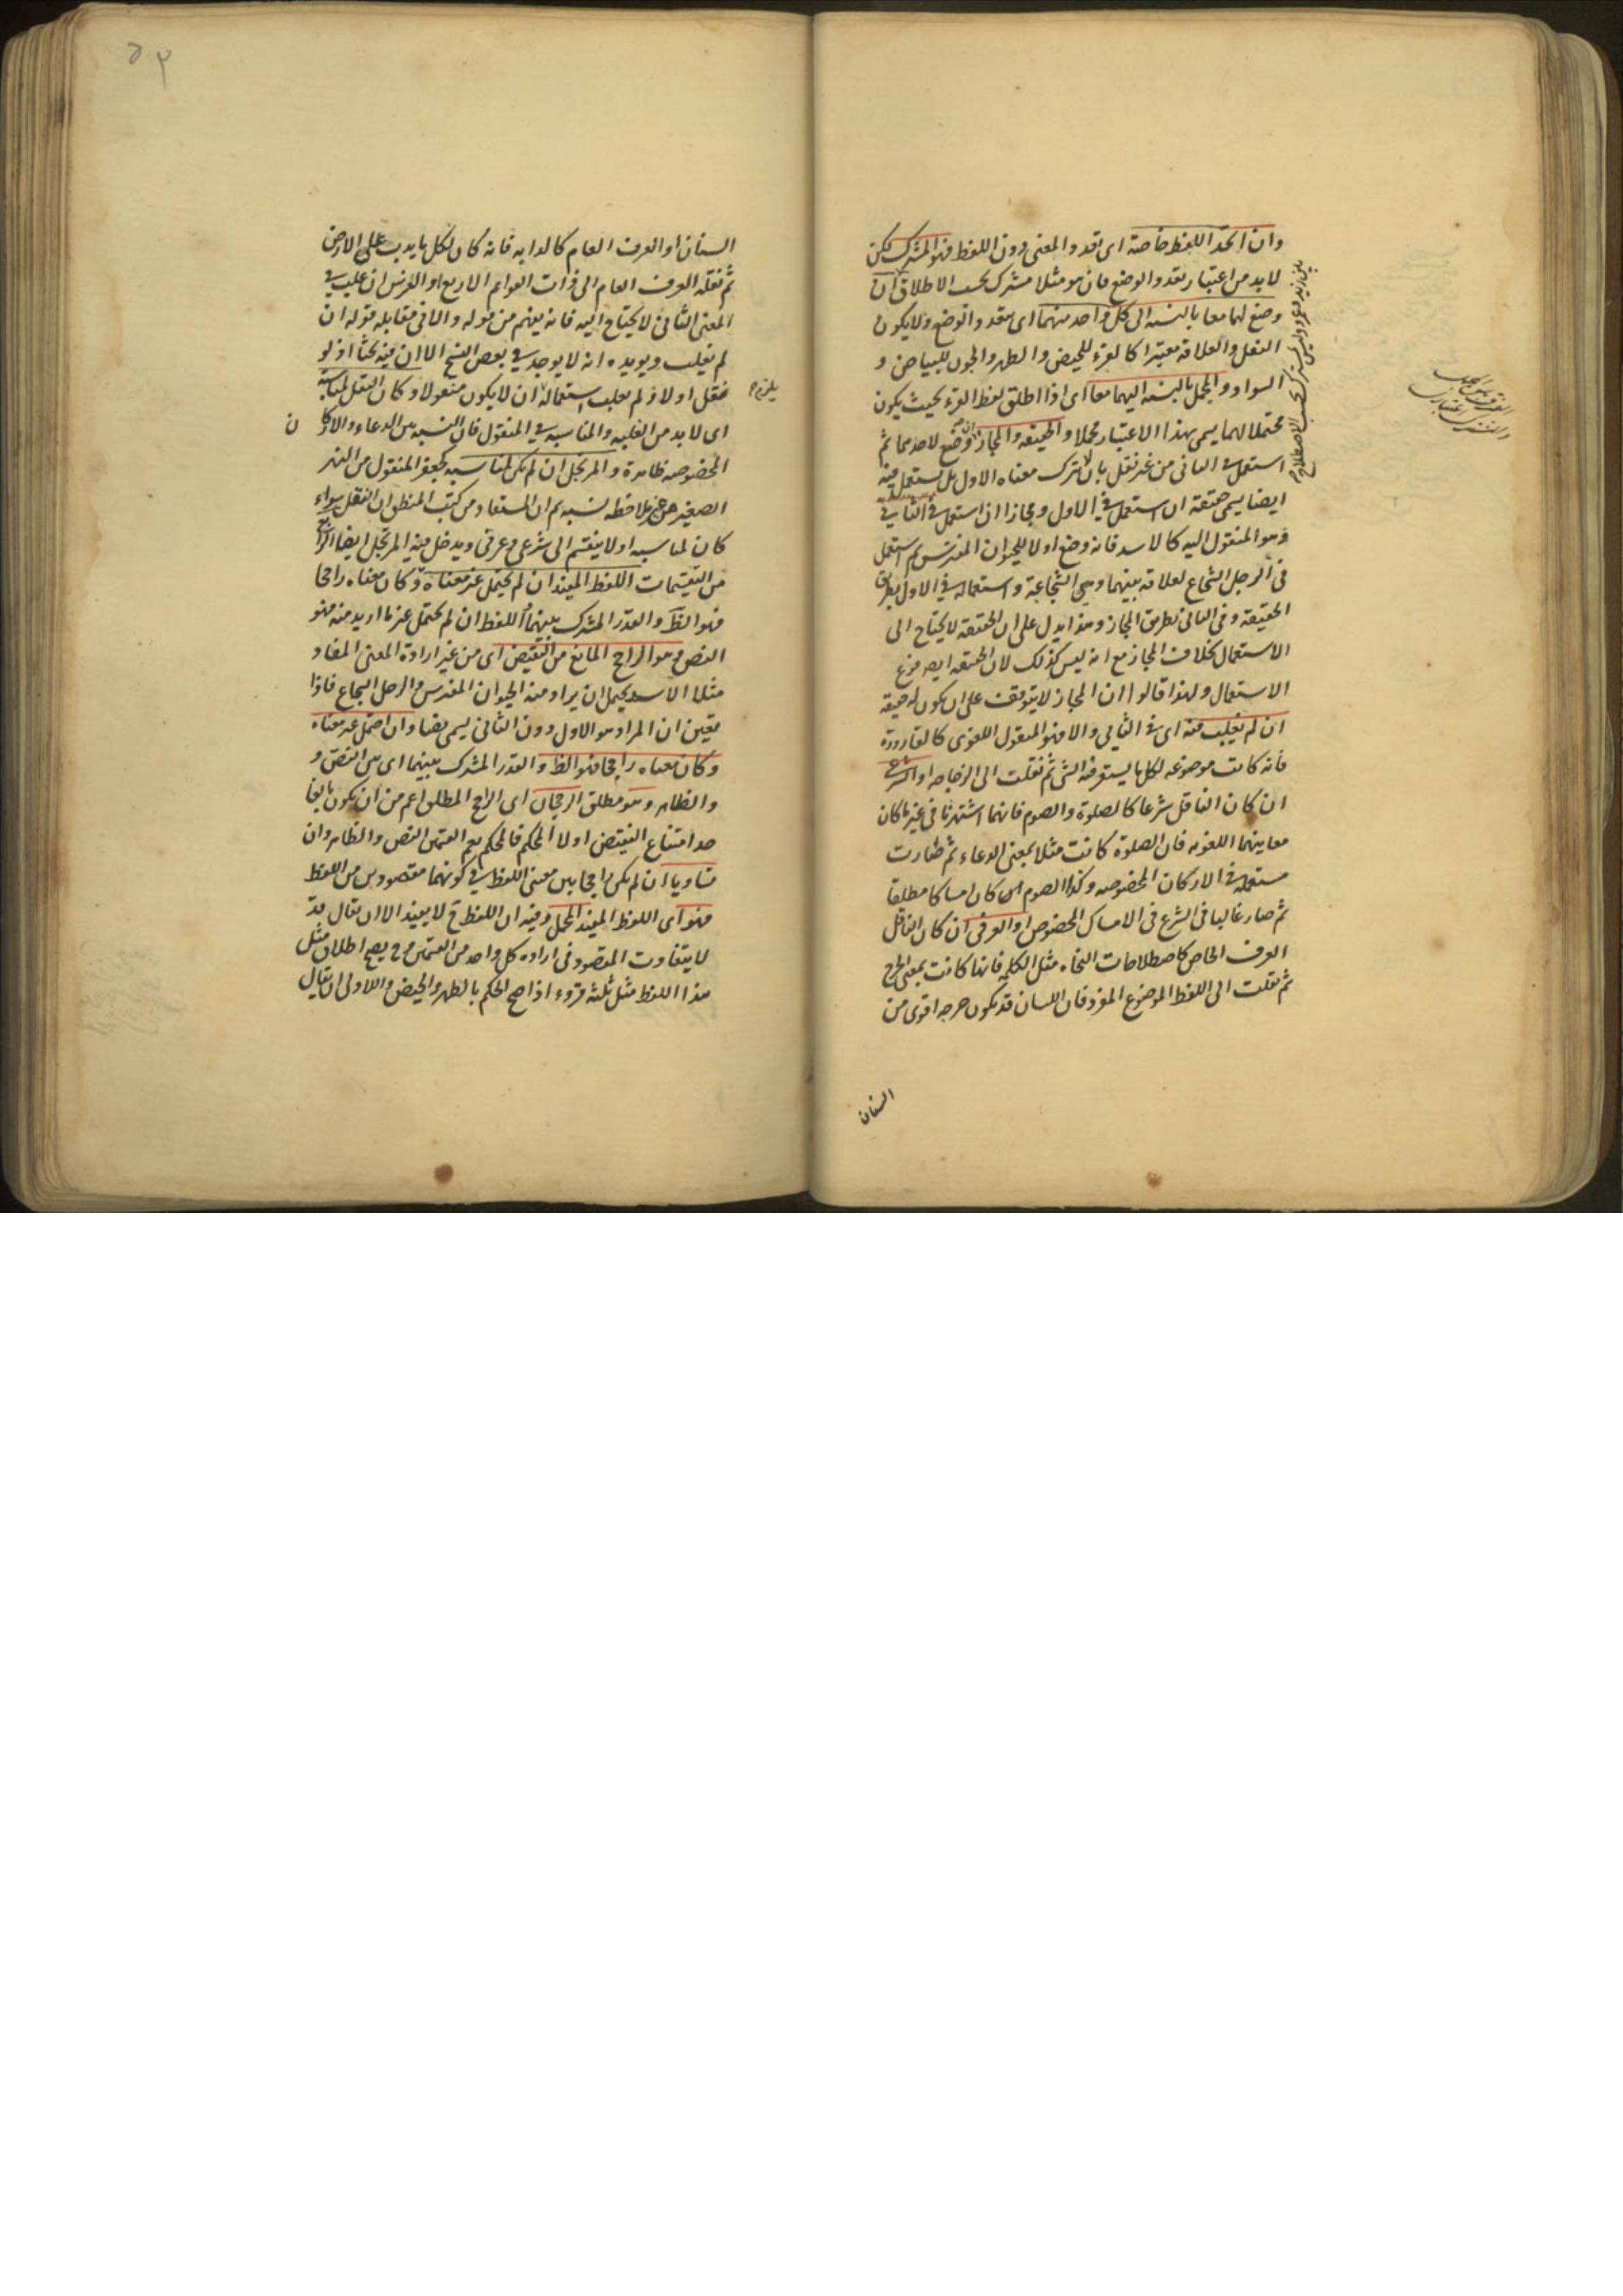 وان اتحد اللفظ خاصة اى تعدد المعنى دون اللفظ فهو المشترك لكن
لابد من اعتبار تعدد الوضع فان هو مثلا مشترك بحسب الاطلاق ان
وضع لهما معا بالنسبه الى كل واحد منهما اى بتعدد الوضع ولايكون
النقل والعلاقة معتبرا كالقرء للحيض والطهر والجون للبياض و
السواد والمجمل بالنسبه اليهما معا اى اذا اطلق لفظ القرء بحيث يكون
محتملا لهما يسمى بهذا الاعتبار مجملا والحقيقه والمجاز ان وضع لاحدهما ثم
استعمل فى الثانى من غير نقل بان لا يترك معناه الاول بل يستعمل فيه
ايضا يسمى حقيقة ان استعمل فى الاول ومجازا ان استعمل فى الثانى
وهو المنقول اليه كالاسد فانه وضع اولا للحيوان المفترس ثم استعمل
فى الرجل الشجاع لعلاقة بينهما وهى الشجاعة واستعماله فى الاول بطريق
الحقيقة وفى الثانى بطريق المجاز وهذا يدل على ان الحقيقة لايحتاج الى
الاستعمال بخلاف المجاز مع انه ليس كذلك لان الحقيقه ايضا فرع
الاستعمال ولهذا قالوا ان المجاز لايتوقف على ان يكون له حقيقة
ان لم يغلب فيه اى فى الثانى والا فهو المنقول اللغوى كالقارورة
فانه كانت موضوعه لكل ما يستقر فيه الشئ ثم نقلت الى الزجاجه او الشرعى
ان كان الناقل شرعا كالصلوة والصوم فانهما اشتهرتا فى غير ما كان
معانيهما اللغويه فان الصلوة كانت مثلا بمعنى الدعاء ثم صارت
مستعملة فى الاركان المخصوصه وكذا الصوم كان امساكا مطلقا
ثم صار غالبا فى الشرع فى الامساك المخصوص او العرفى ان كان الناقل
العرف الخاص كاصطلاحات النحاه مثل الكلمه فانها كانت بمعنى الجرح
ثم نقلت الى اللفظ الموضوع المفرد فان اللسان قد يكون جرحه اقوى من
السنان
السنان او العرف العام كالدابه فانه كان لكل ما يدب على الارض
ثم نقله العرف العام الى ذات القوائم الاربع او الفرس ان غلب فى
المعنى الثانى لايحتاج اليه فانه يفهم من قوله والا فى مقابله قوله ان
لم يغلب ويويده انه لايوجد فى بعض النسخ الا ان فيه بحثا اذ لو
نقل اولا ولم يغلب استعماله ان لايكون منقولا وكان النقل لمناسبة
اى لابد من الغلبه والمناسبه فى المنقول فان النسبه بين الدعاء والاركان
المخصوصه ظاهرة والمرتجل ان لم يكن لمناسبه كجعفر المنقول من النهر
الصغير من غير ملاحظه نسبه ثم ان المستفاد من كتب المنطق ان النقل سواء
كان لمناسبه اولا ينقسم الى شرعى وعرفى ويدخل فيه المرتجل ايضا الرابع
من التقسيمات اللفظ المفيد ان لم يحتمل غير معناه وكان معناه راجحا
فهو النص والقدر المشترك بينهما اللفظ ان لم يحتمل غير ما اريد منه فهو
النص وهو الراجح المانع من النقيض اى من غير ارادة المعنى المفاد
مثلا الاسد يحتمل ان يراد منه الحيوان المفترس والرجل الشجاع فاذا
تعين ان المراد هو الاول دون الثانى يسمى نصا وان احتمل غير معناه
وكان معناه راجحا فهو الظ والقدر المشترك بينهما اى بين النص و
والظاهر وهو مطلق الرجحان اى الراجح المطلق اعم من ان يكون بالغا
حد امتناع النقيض اولا المحكم فالمحكم يعم القسمين النص والظاهر وان
تساويا ان لم يكن راجحا بين معنى اللفظ فى كونهما مقصودين من اللفظ
فهو اى اللفظ المفيد المجمل وفيه ان اللفظ ح لايفيد الا ان يقال قد
لايتفاوت المقصود فى اراده كل واحد من القسمين وح يصح اطلاق مثل
هذا اللفظ مثل ثلثة قروء اذا صح الحكم بالطهر والحيض والاولى ان يقال